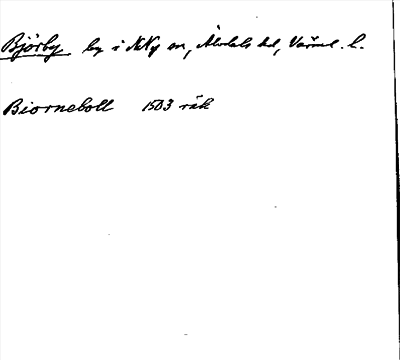 Björby by i N Ny sn, Älvdals hd, Värml. l.
Biorneboll 1503 räk